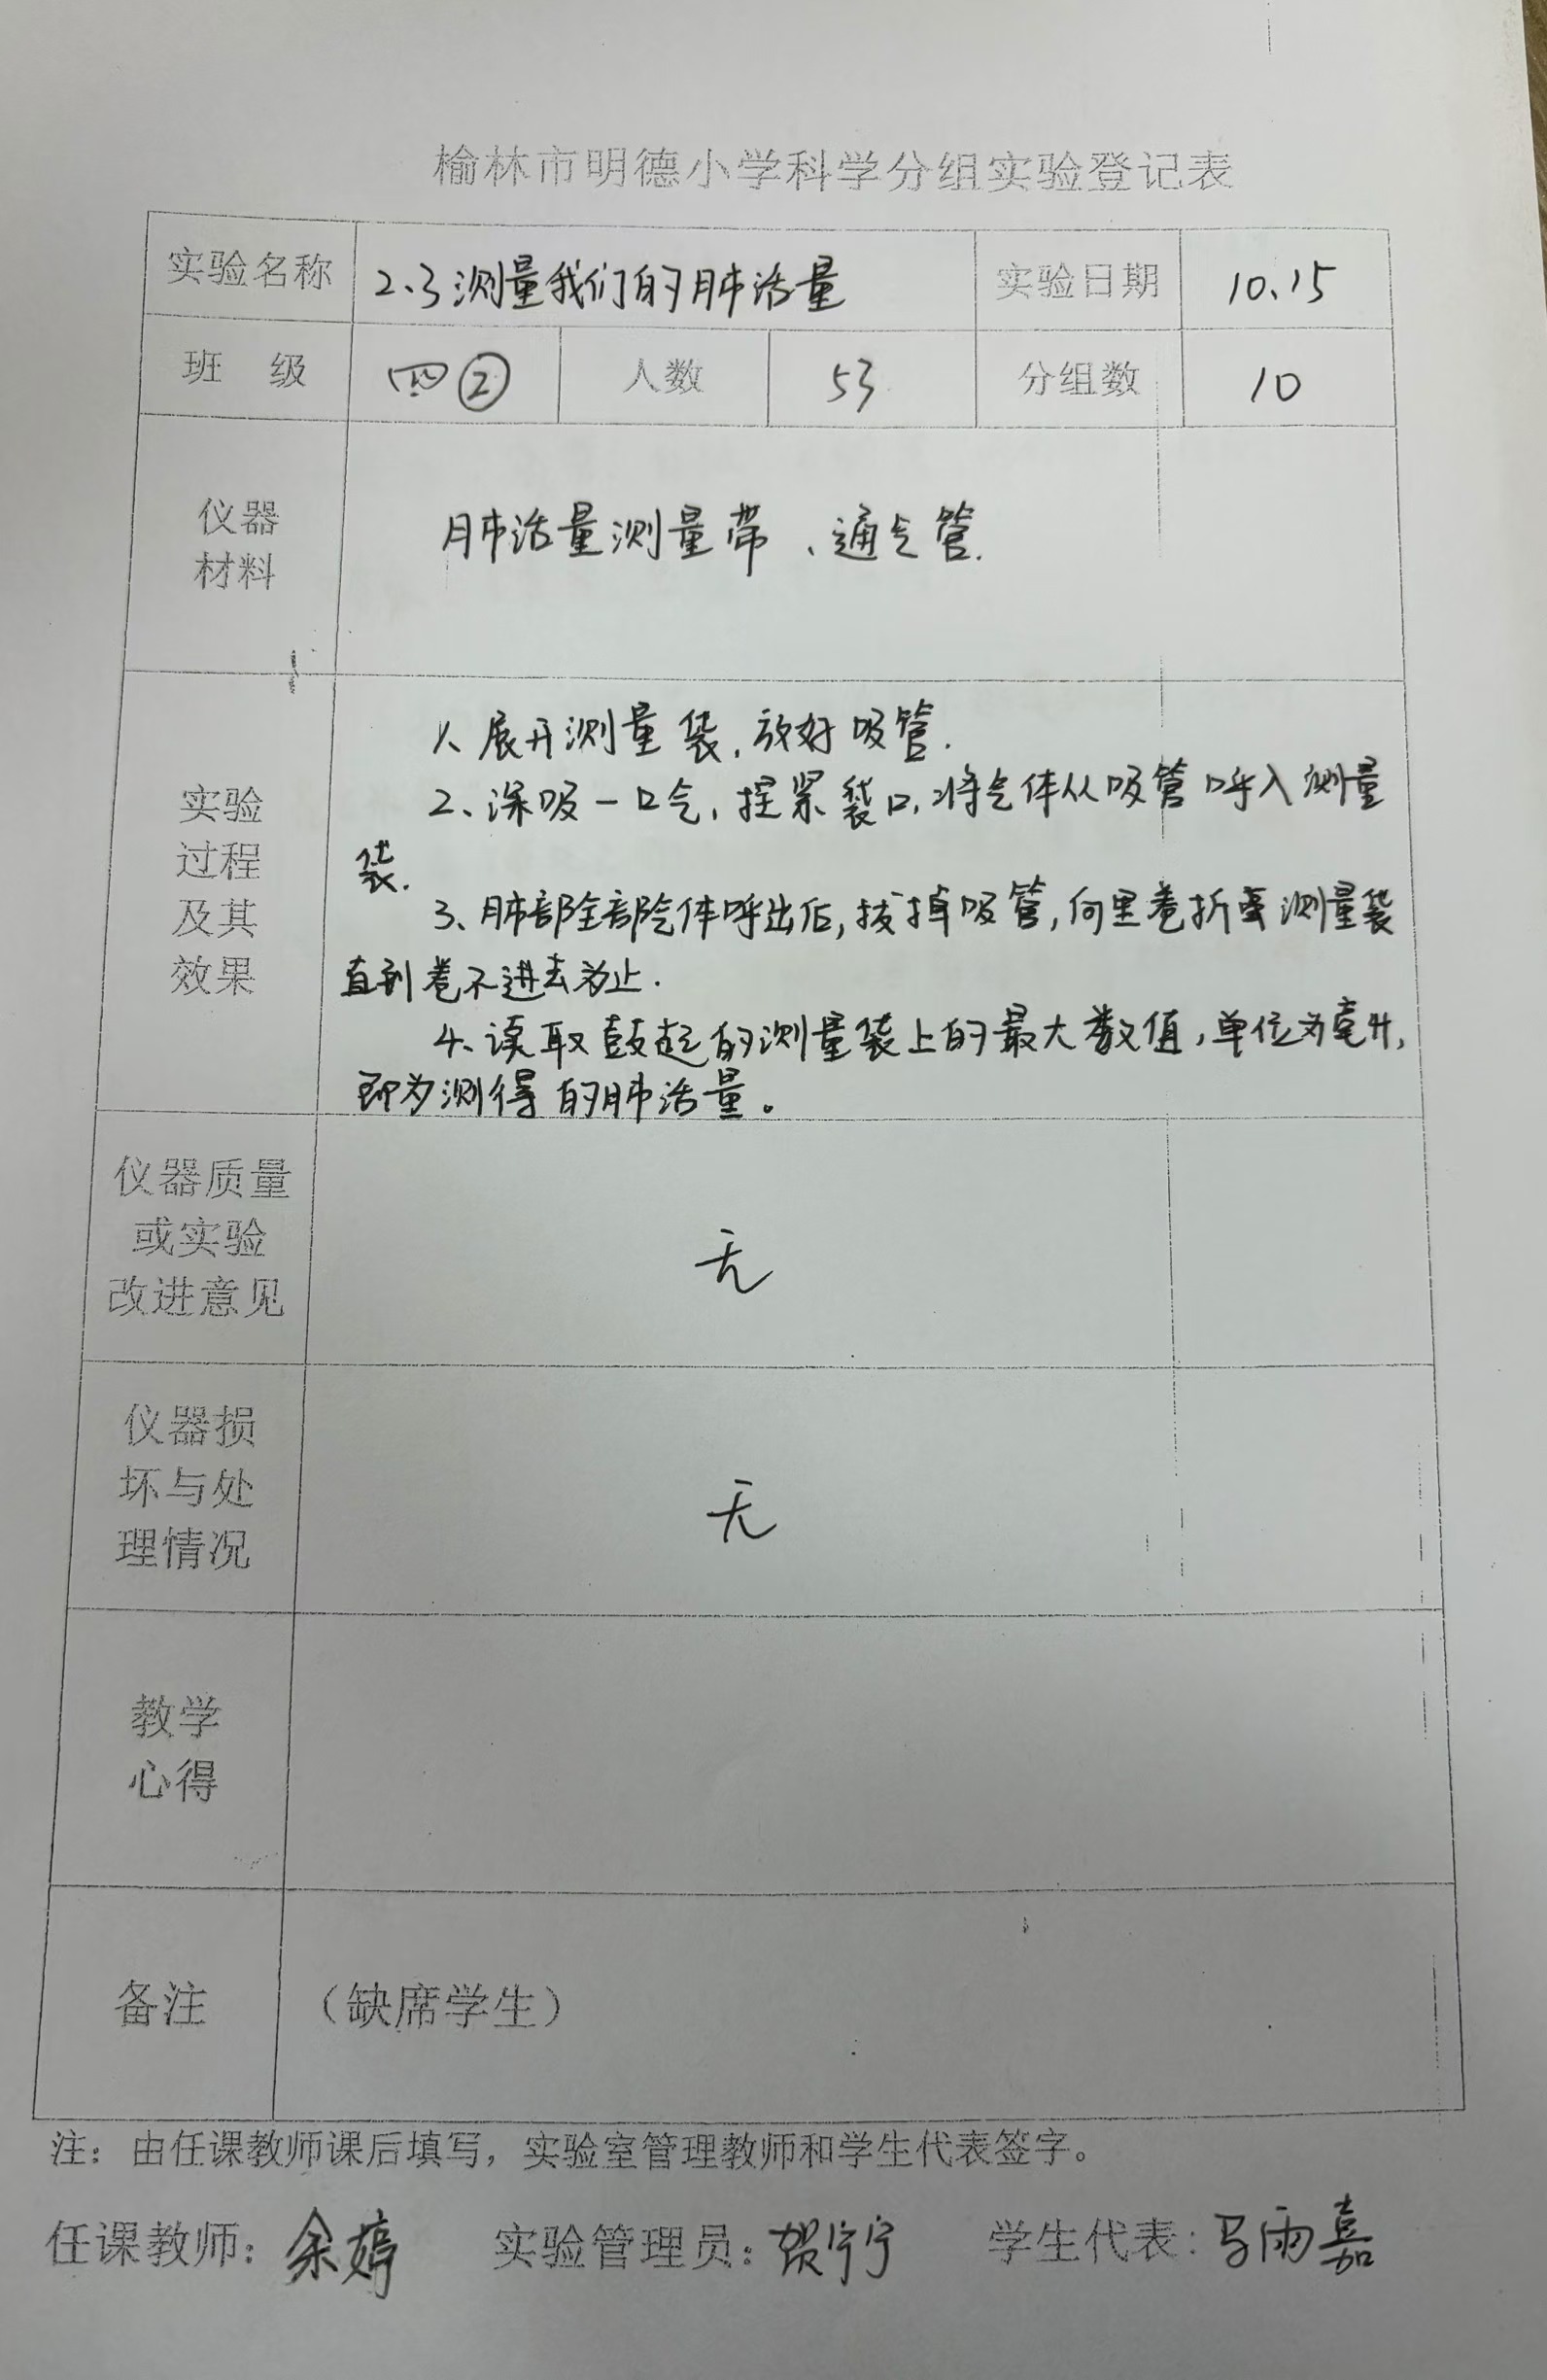 榆林市明德小学科学分组实验登记表
实验名称 2.3测量我们的肺活量 实验日期 10.15
班 级 四② 人数 53 分组数 10
仪器
材料
肺活量测量带、通气管.
实验
过程
及其
效果
1、展开测量袋,放好吸管.
2、深吸一口气,捏紧袋口,将气体从吸管呼入测量
袋.
3、肺部全部气体呼出后,拔掉吸管,向里卷折测量袋
直到卷不进去为止.
4、读取鼓起的测量袋上的最大数值,单位为毫升,
即为测得的肺活量。
仪器质量
或实验
改进意见
无
仪器损
坏与处
理情况
无
教学
心得
备注 (缺席学生)
注：由任课教师课后填写，实验室管理教师和学生代表签字。
任课教师：余婷 实验管理员：贺宁宁 学生代表：马雨嘉